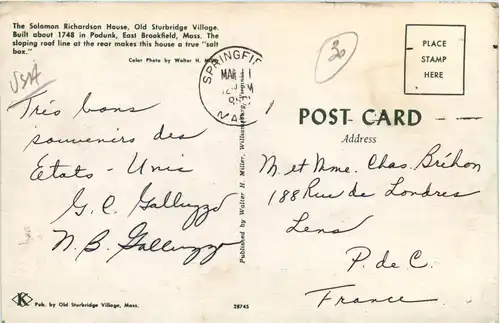 The Solomon Richardson House, Old Sturbridge Village.
Built about 1748 in Podunk, East Brookfield, Mass. The
sloping roof line at the rear makes this house a true "salt
box."
Color Photo by Walter H.
USA
Très bons
souvenirs des
Etats-Unis
G. C. Galluzzo
N. B. Galluzzo
K
Pub. by Old Sturbridge Village, Mass.
28745
Published by Walter H. Miller, Williamsburg, Virginia
SPRINGFIE
MAR 1
30
PLACE
STAMP
HERE
POST CARD
Address
M. et Mme. Chas. Bréhon
188 Rue de Londres
Lens
P. de C.
France